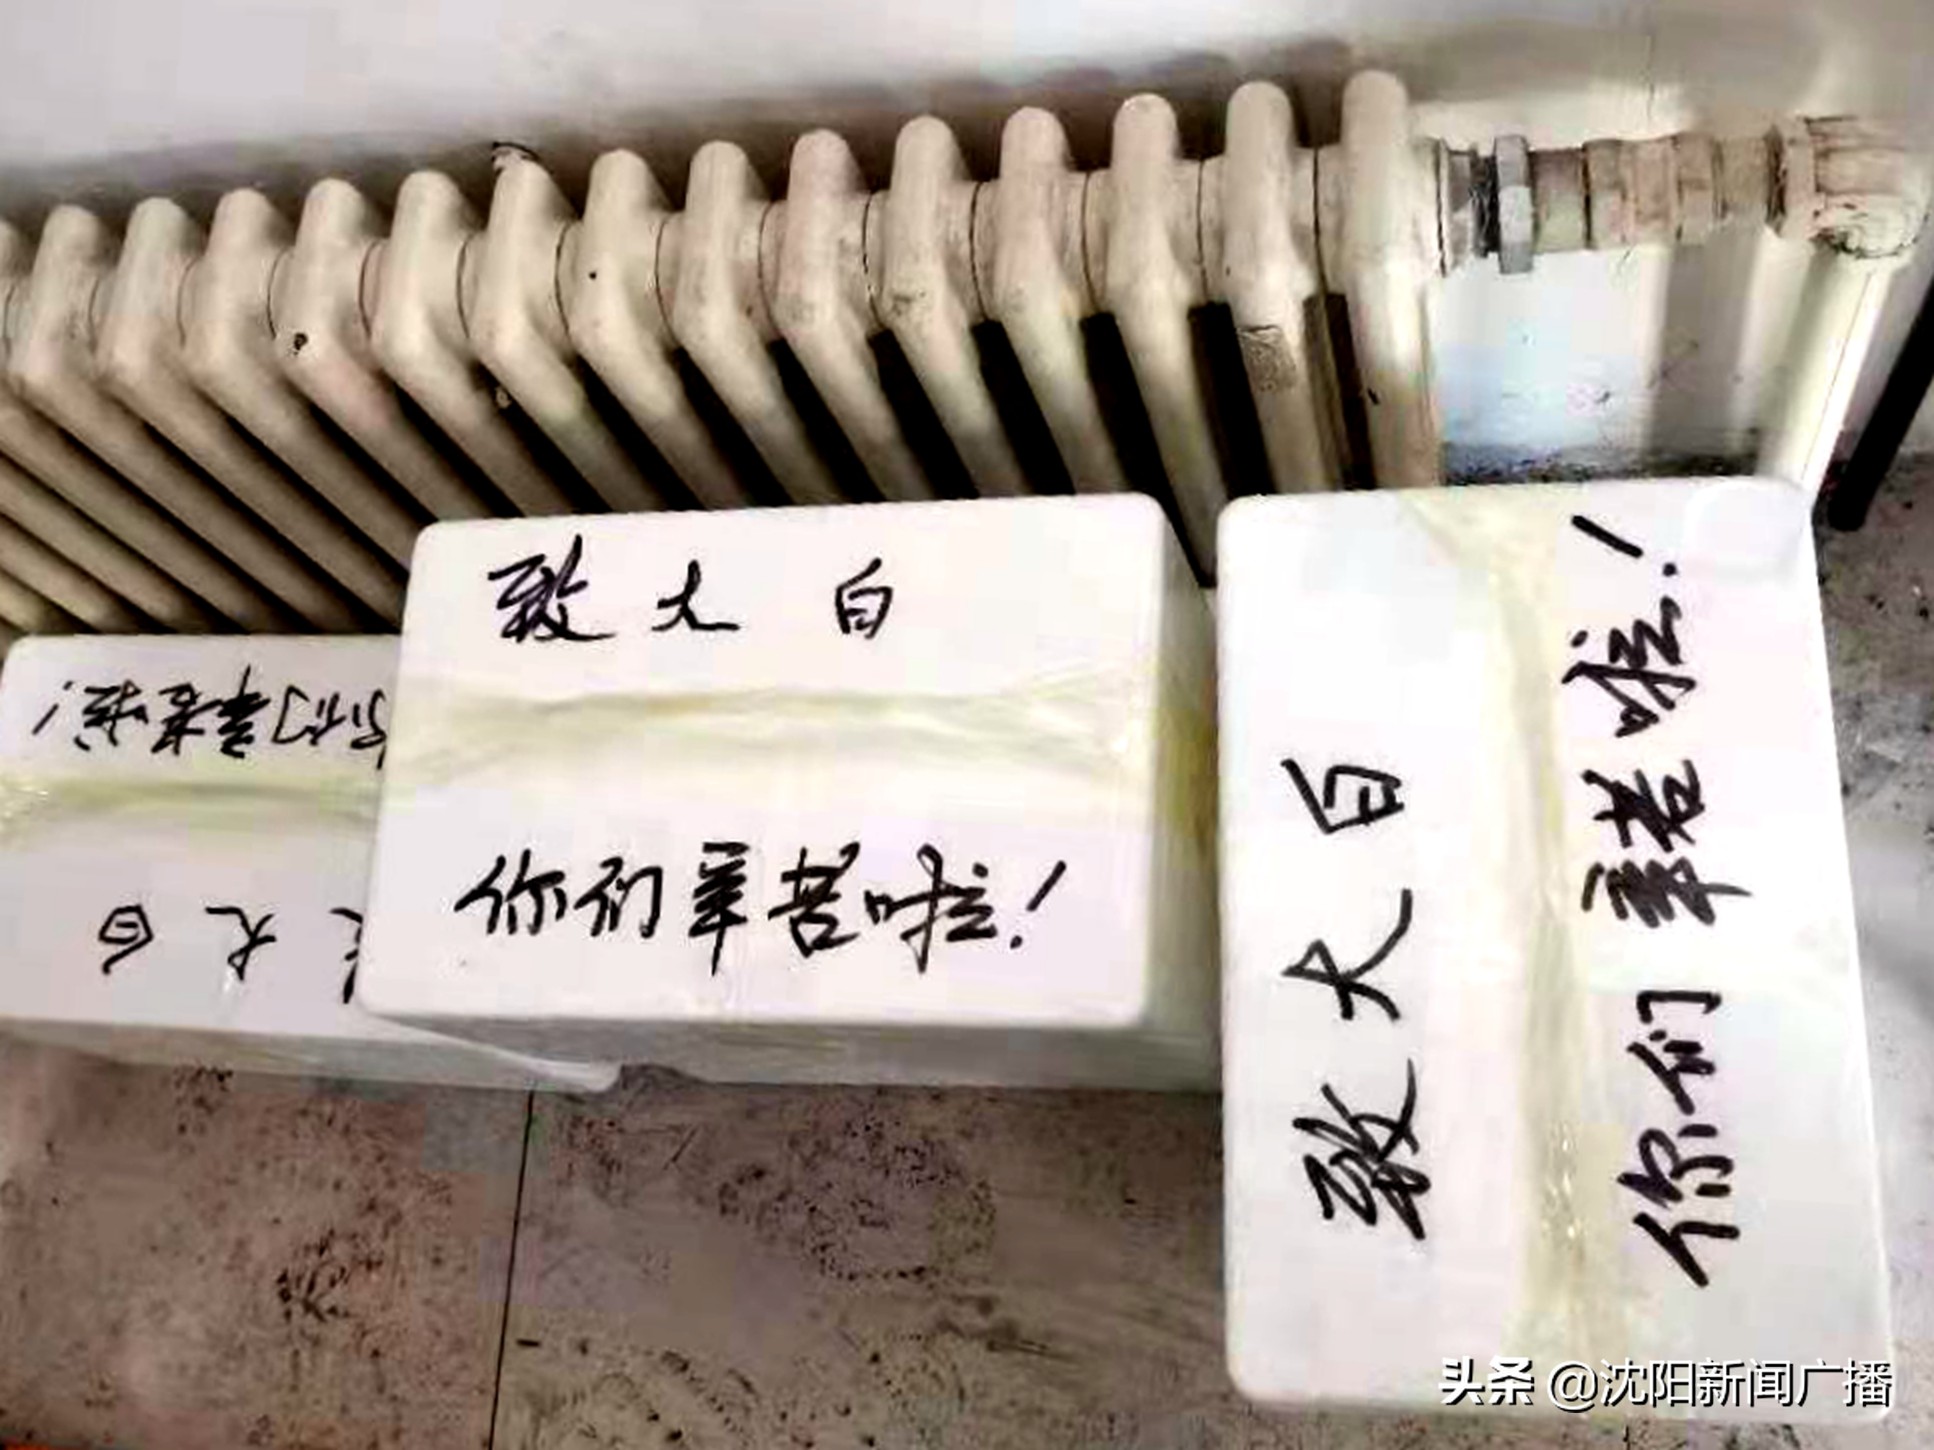 致大白
你们辛苦啦！
致大白
你们辛苦啦！
你们辛苦啦！
大白
头条 @沈阳新闻广播